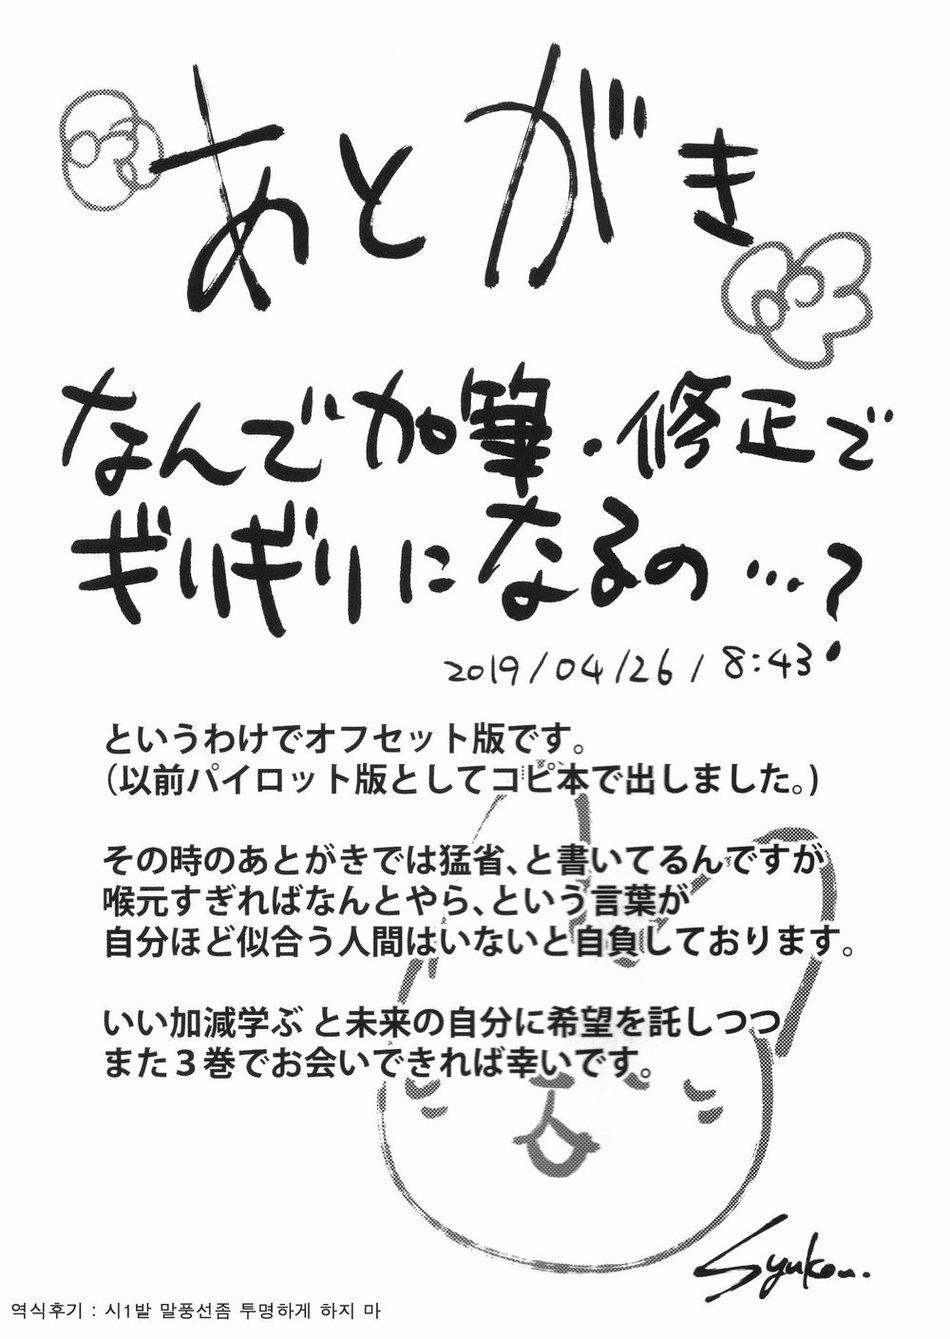 あとがき
なんで加筆・修正で
ギリギリになるの…?
2019/04/26/8:43
というわけでオフセット版です。
(以前パイロット版としてコピ本で出しました。)
その時のあとがきでは猛省、と書いてるんですが
喉元すぎればなんとやら、という言葉が
自分ほど似合う人間はいないと自負しております。
いい加減学ぶ と未来の自分に希望を託しつつ
また3巻でお会いできれば幸いです。
Syukou.
역식후기 : 시1발 말풍선좀 투명하게 하지 마